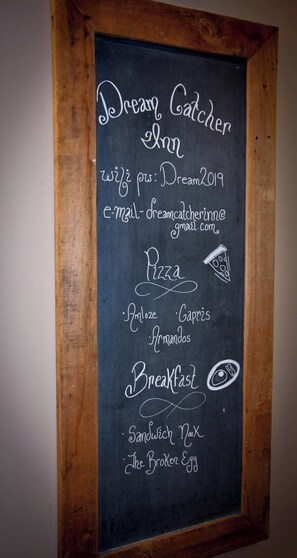 Dream Catcher
Inn
wifi pw: Dream2019
e-mail-dreamcatcherinn@
gmail.com
Pizza
· Amloze · Capris
Armandos
Breakfast
· Sandwich Nook
· The Broken Egg